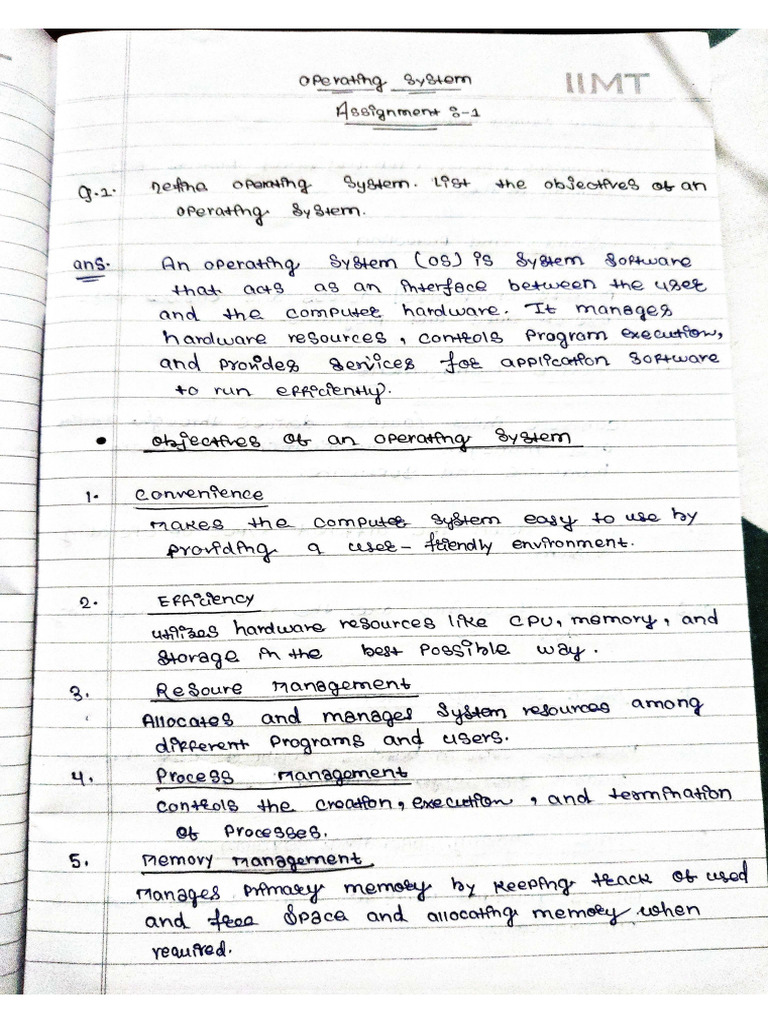 Operating System
IIMT
Assignment :-1
Q.1. Define operating system. List the objectives of an
operating system.
ans. An operating system (OS) is system software
that acts as an interface between the user
and the computer hardware. It manages
hardware resources, controls program execution,
and provides services for application software
to run efficiently.
• Objectives of an operating system
1. Convenience
Makes the computer system easy to use by
providing a user-friendly environment.
2. Efficiency
utilizes hardware resources like CPU, memory, and
storage in the best possible way.
3. Resoure Management
Allocates and manages system resources among
different programs and users.
4. Process Management
controls the creation, execution, and termination
of processes.
5. Memory Management
Manages primary memory by keeping track of used
and free space and allocating memory when
required.